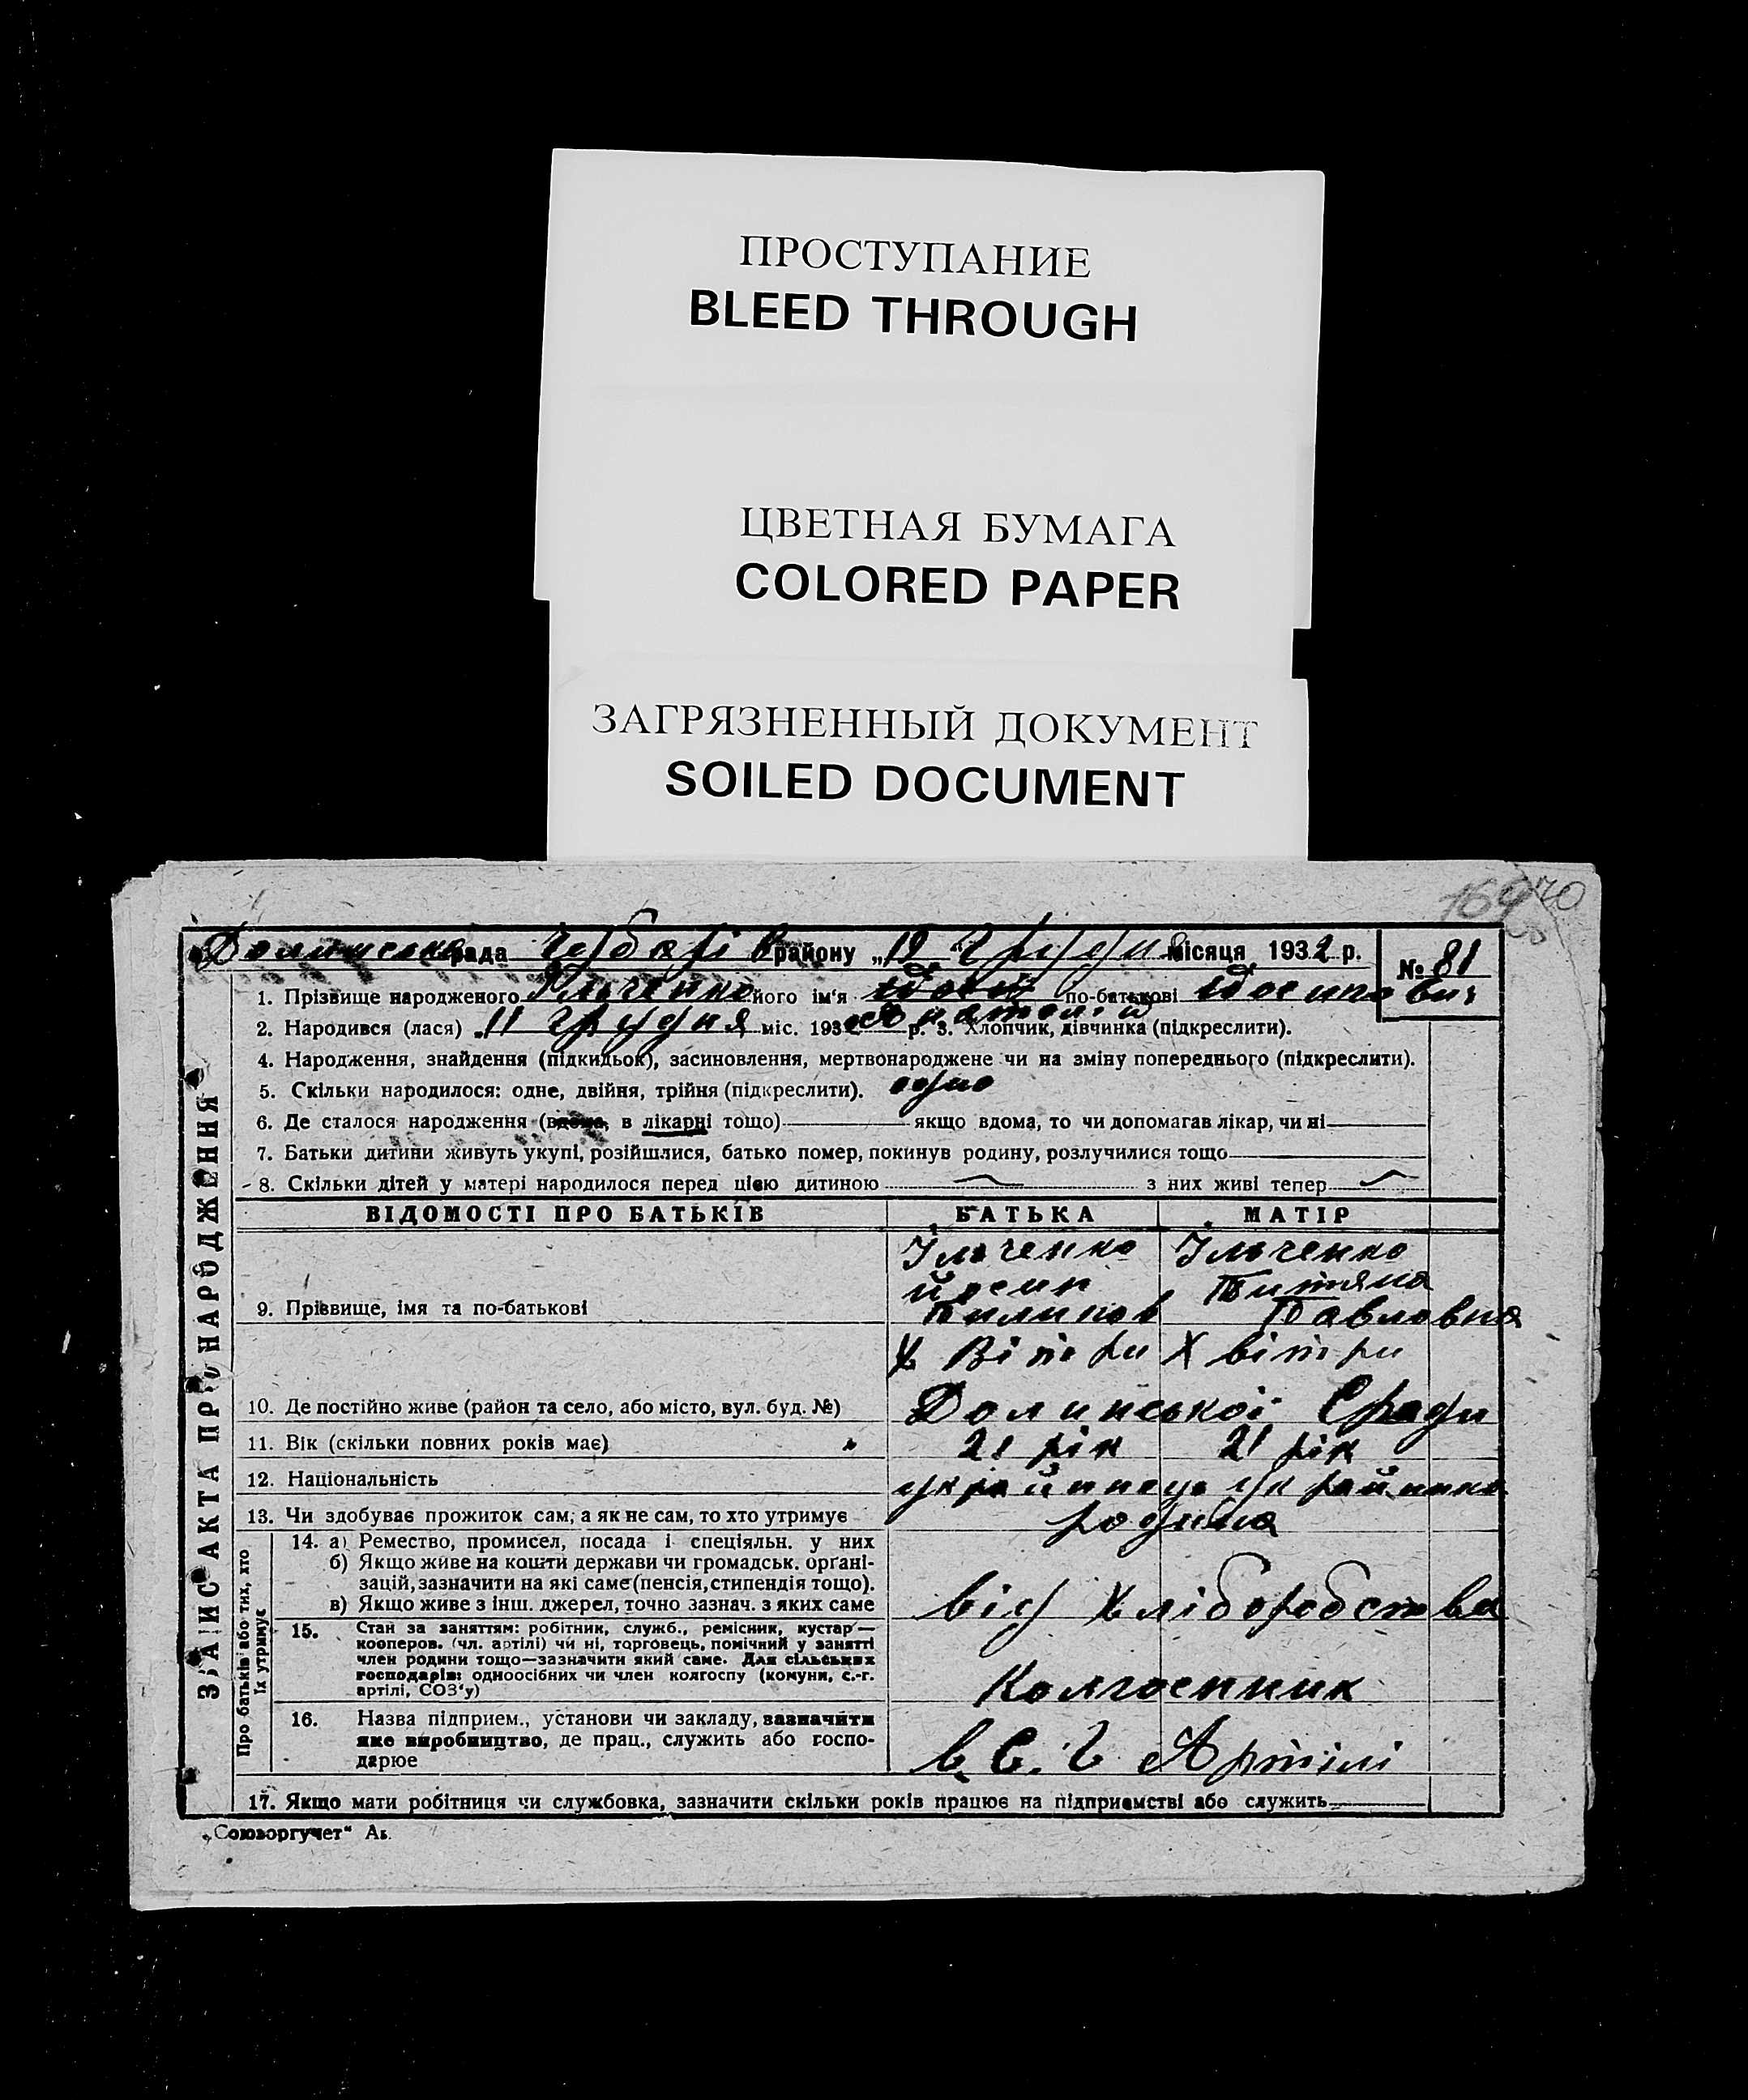 ПРОСТУПАНИЕ
BLEED THROUGH
ЦВЕТНАЯ БУМАГА
COLORED PAPER
ЗАГРЯЗНЕННЫЙ ДОКУМЕНТ
SOILED DOCUMENT
70
Долинська рада району „ 19 “ Грудня місяця 1932 р.
№ 81
1. Прізвище народженого Ільченко його ім'я по-батькові Йосипович
Анатолій
2. Народився (лася) „ 11 Грудня міс. 193 р. 3. Хлопчик, дівчинка (підкреслити).
4. Народження, знайдення (підкидьок), засиновлення, мертвонароджене чи на зміну попереднього (підкреслити).
5. Скільки народилося: одне, двійня, трійня (підкреслити). одно
6. Де сталося народження (вдома, в лікарні тощо) якщо вдома, то чи допомагав лікар, чи ні
7. Батьки дитини живуть укупі, розійшлися, батько помер, покинув родину, розлучилися тощо
8. Скільки дітей у матері народилося перед цією дитиною з них живі тепер
ЗАПИС АКТА ПРО НАРОДЖЕННЯ
ВІДОМОСТІ ПРО БАТЬКІВ БАТЬКА МАТІР
Ільченко Ільченко
Йосип Титяна
9. Прізвище, імя та по-батькові Пилипов Павловна
Х Вітри Х вітри
10. Де постійно живе (район та село, або місто, вул. буд. №) Долинської С ради
11. Вік (скільки повних років має) 21 рік 21 рік
12. Національність украйинець украйинка
13. Чи здобуває прожиток сам, а як не сам, то хто утримує родина
Про батьків або тих, хто
їх утримує
14. а) Ремество, промисел, посада і спеціяльн. у них
б) Якщо живе на кошти держави чи громадськ. орґані-
зацій, зазначити на які саме (пенсія, стипендія тощо).
в) Якщо живе з інш. джерел, точно зазнач. з яких саме від Хліборобства
15. Стан за заняттям: робітник, служб., ремісник, кустар—
кооперов. (чл. артілі) чи ні, торговець, помічний у занятті
член родини тощо—зазначити який саме. Для сільських
господарів: одноосібних чи член колгоспу (комуни, с.-г.
артілі, СОЗ'у) Колгоспник
16. Назва підприєм., установи чи закладу, зазначити
яке виробництво, де прац., служить або госпо-
дарює в С. Г Артілі
17. Якщо мати робітниця чи службовка, зазначити скільки років працює на підприємстві або служить
„Союзоргучет“